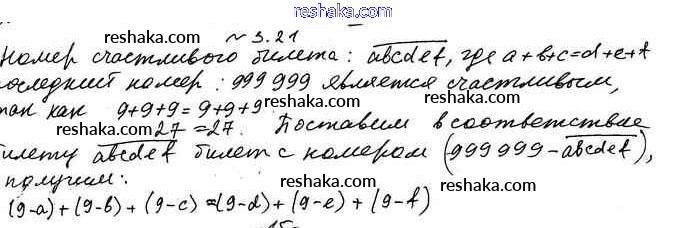 reshaka.com
№ 3.21
Номер счастливого билета: abcdef, где a+b+c=d+e+f
reshaka.com
reshaka.com
последний номер: 999 999 является счастливым,
так как 9+9+9=9+9+9
reshaka.com
reshaka.com
27=27. Поставим в соответствие
reshaka.com
reshaka.com
билету abcdef билет с номером (999 999 - abcdef),
получим:
reshaka.com
reshaka.com
(9-a)+(9-b)+(9-c)=(9-d)+(9-e)+(9-f)
reshaka.com